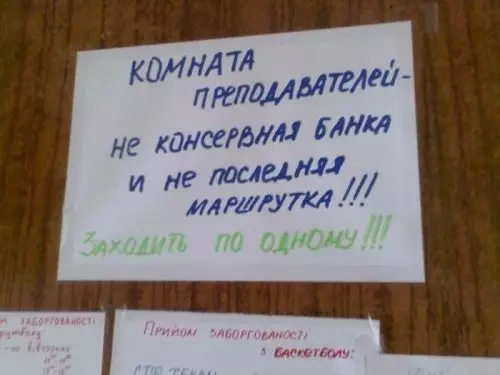 КОМНАТА
ПРЕПОДАВАТЕЛЕЙ-
НЕ КОНСЕРВНАЯ БАНКА
И НЕ ПОСЛЕДНЯЯ
МАРШРУТКА!!!
ЗАХОДИТЬ ПО ОДНОМУ!!!
ЗАБОРГОВАНОСТІ
Прийом ЗАБОРГОВАНОСТІ
З БАСКЕТБОЛУ: